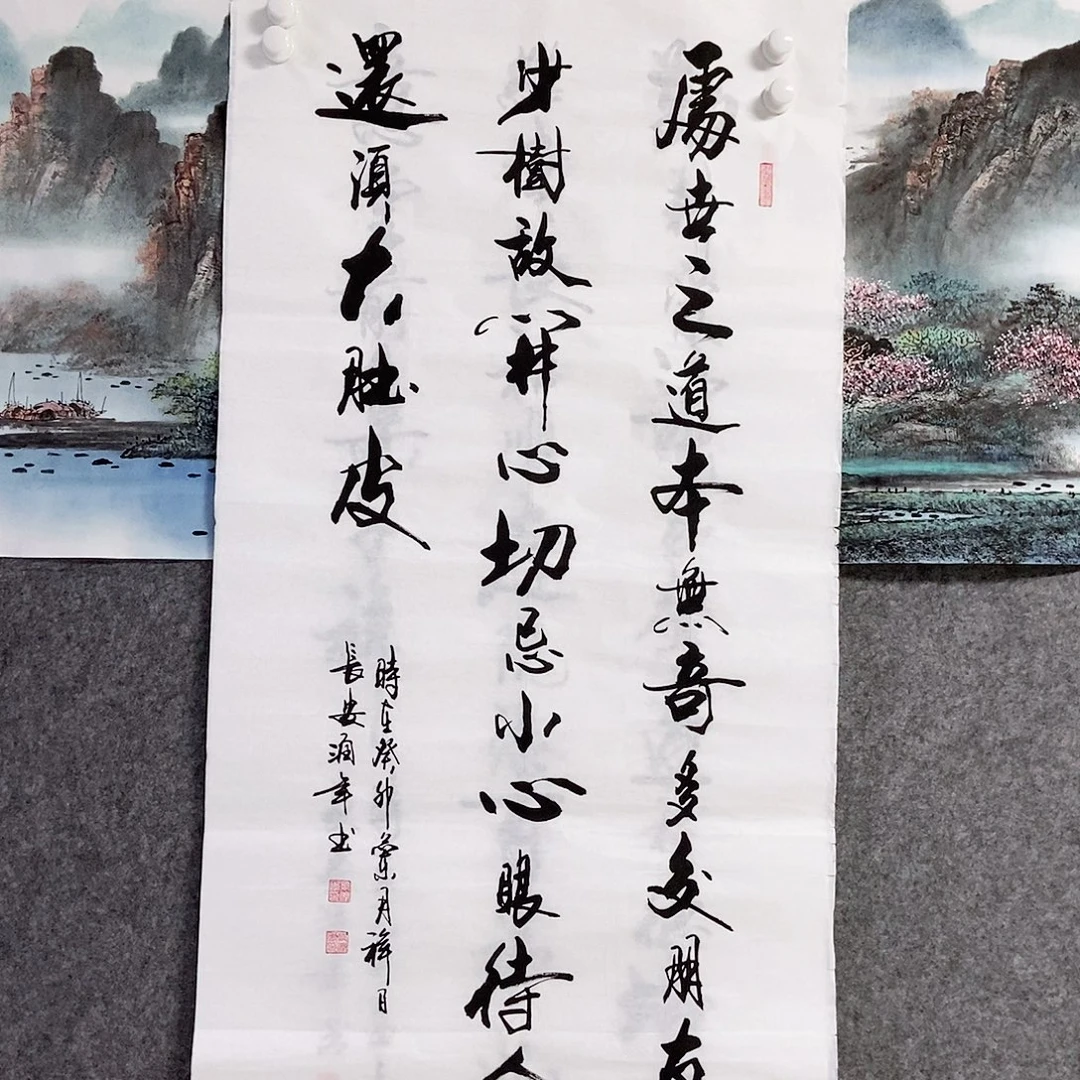 處世之道本無奇多交朋友
少樹敵開心切忌小心眼待人
還須大肚皮
時在癸卯蘭月祥日
長安涵年书